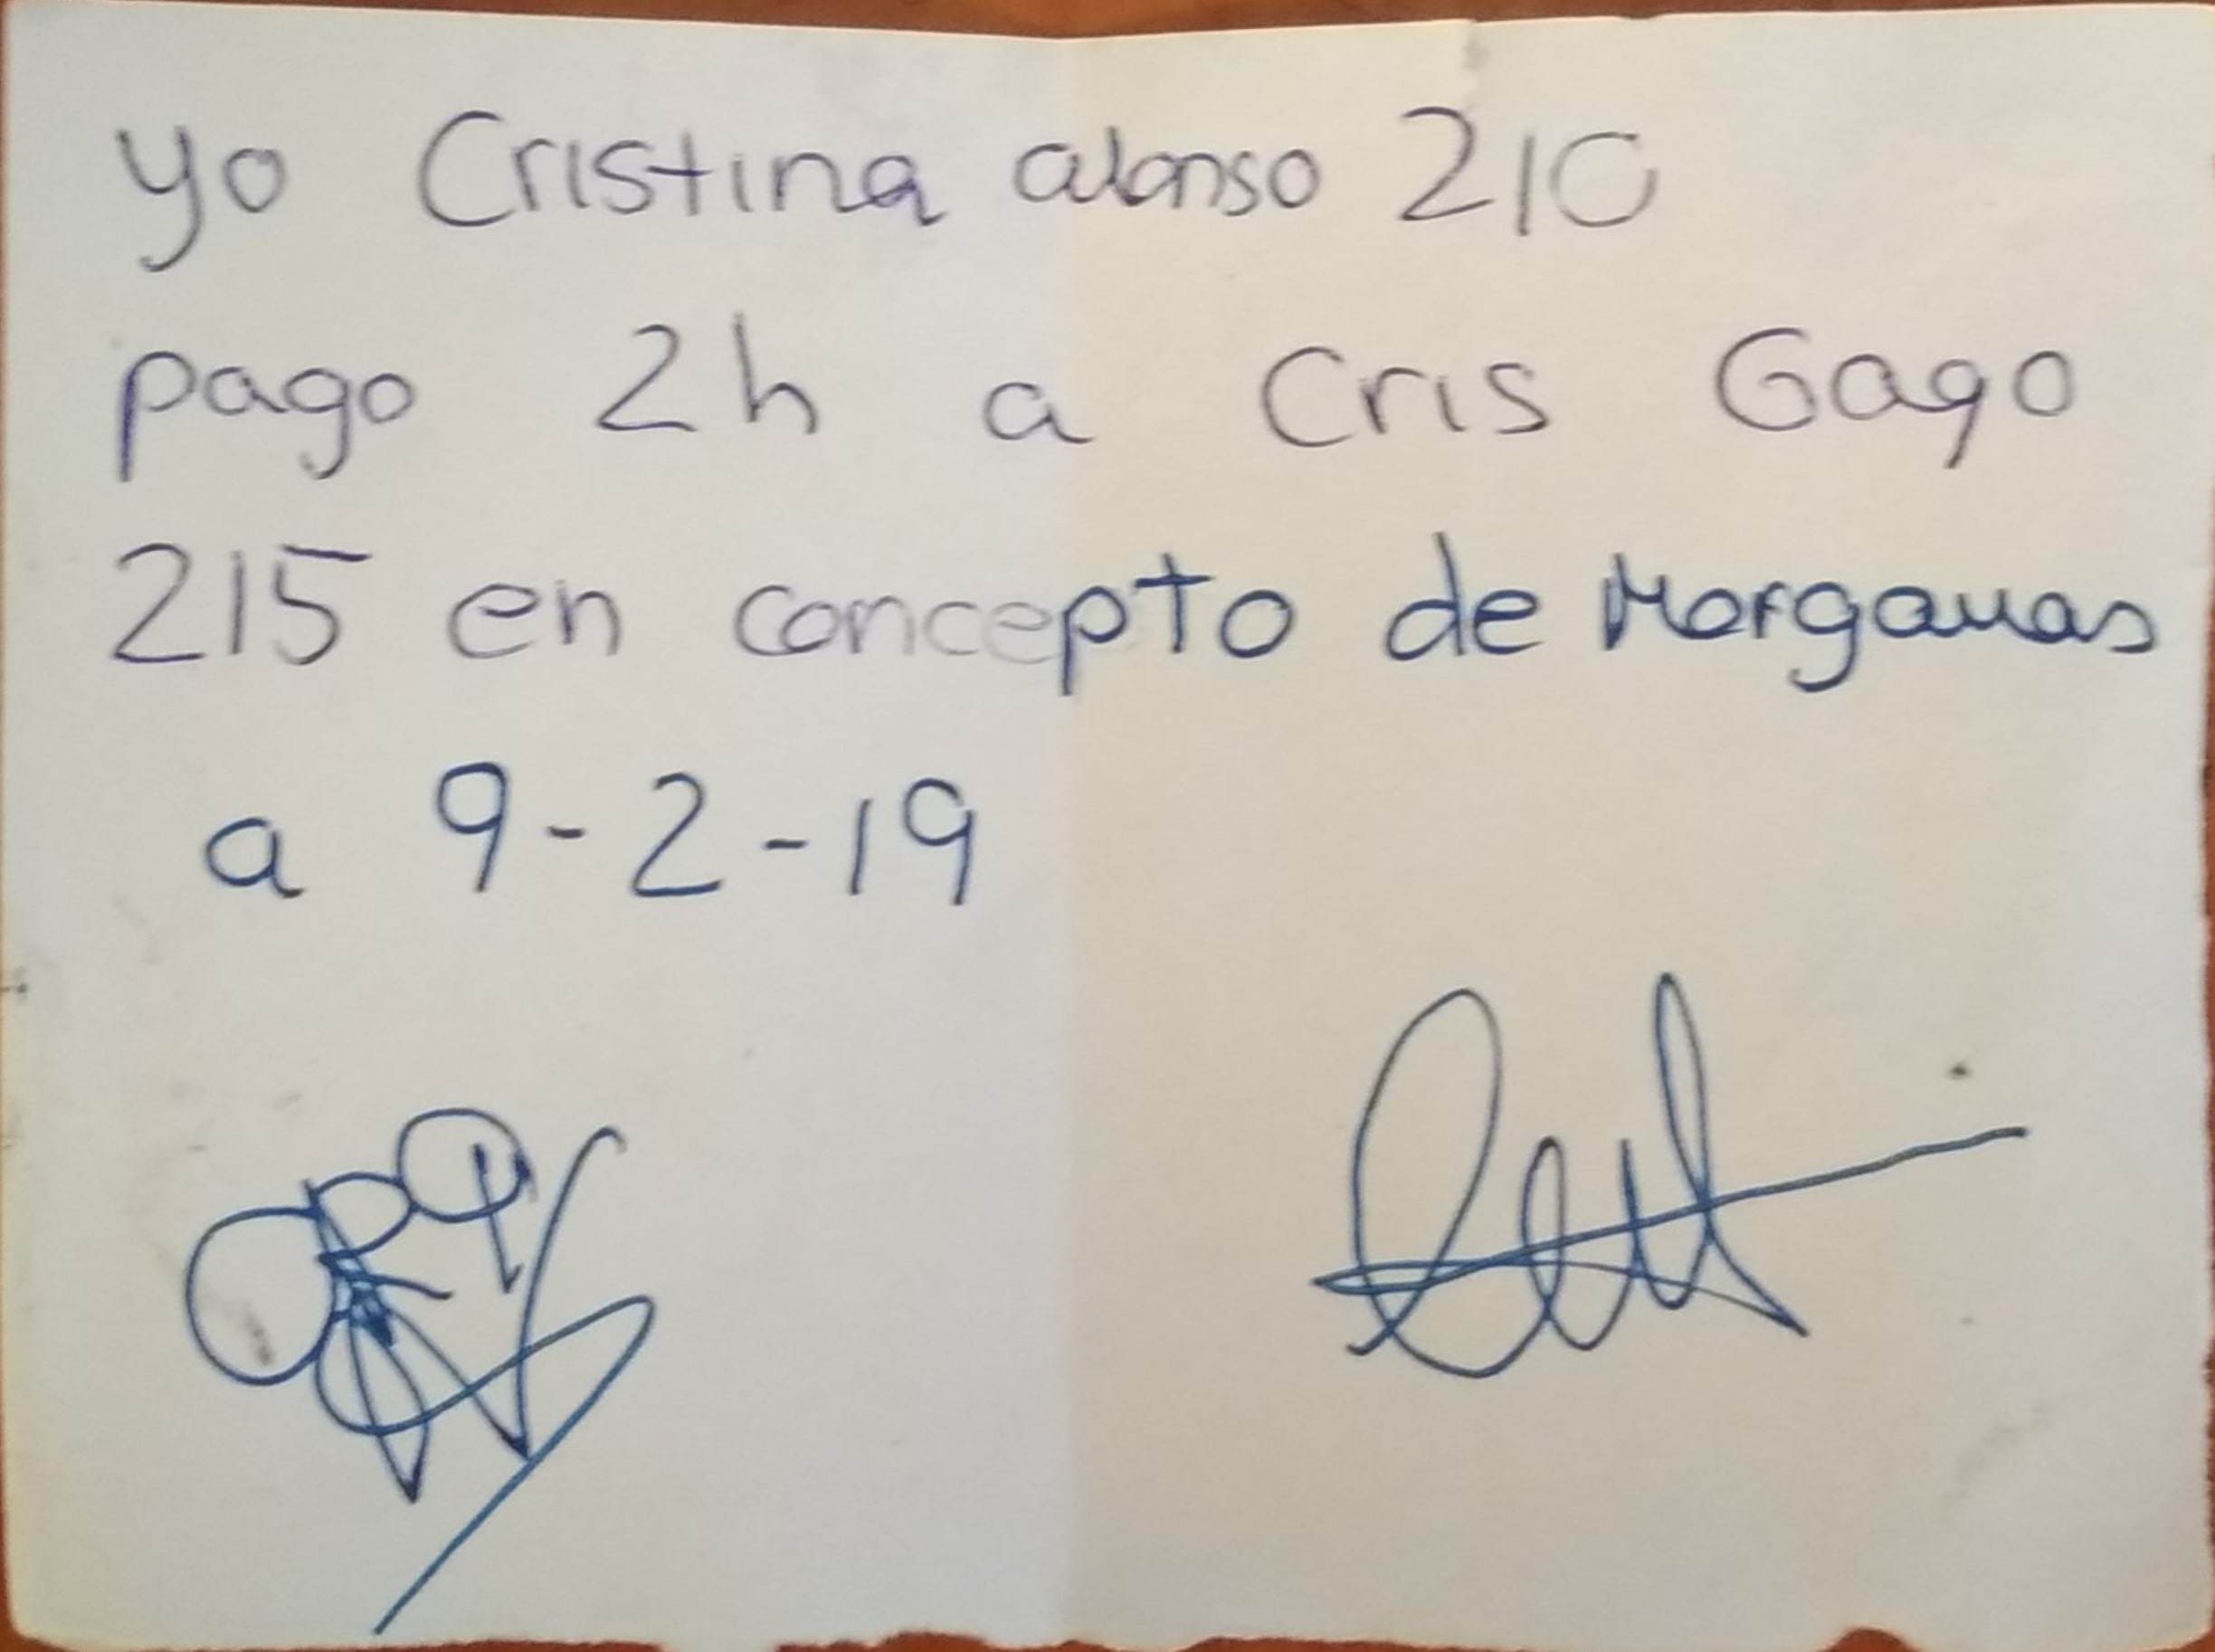 yo Cristina alonso 210
pago 2h a Cris Gago
215 en concepto de Morganas
a 9-2-19